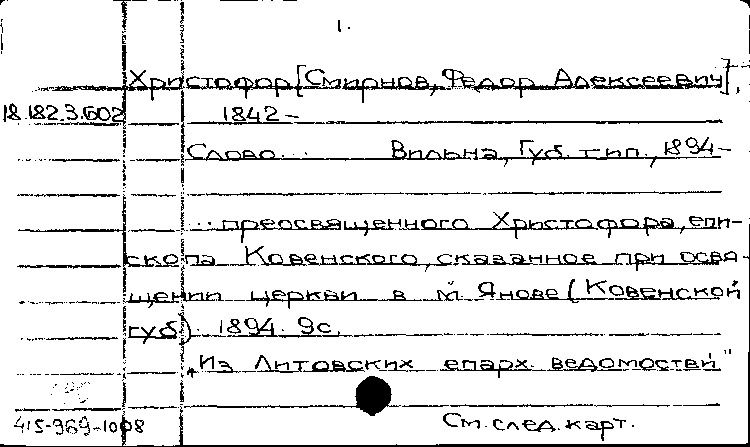 1.
Христофор [Смирнов, Федор Алексеевич],
18.182.3.602 1842-
Слово... Вильна, Губ. тип., 1894-
...преосвященного Христофора, епи-
скопа Ковенского, сказанное при освя-
щении церкви в м. Янове (Ковенской
губ.). 1894. 9с.
"Из Литовских епарх. ведомостей"
415-969-1008 См. след. карт.